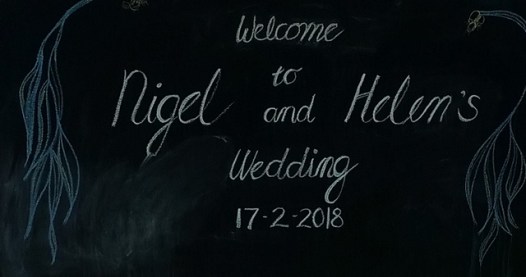 Welcome
to
Nigel and Helen's
Wedding
17-2-2018